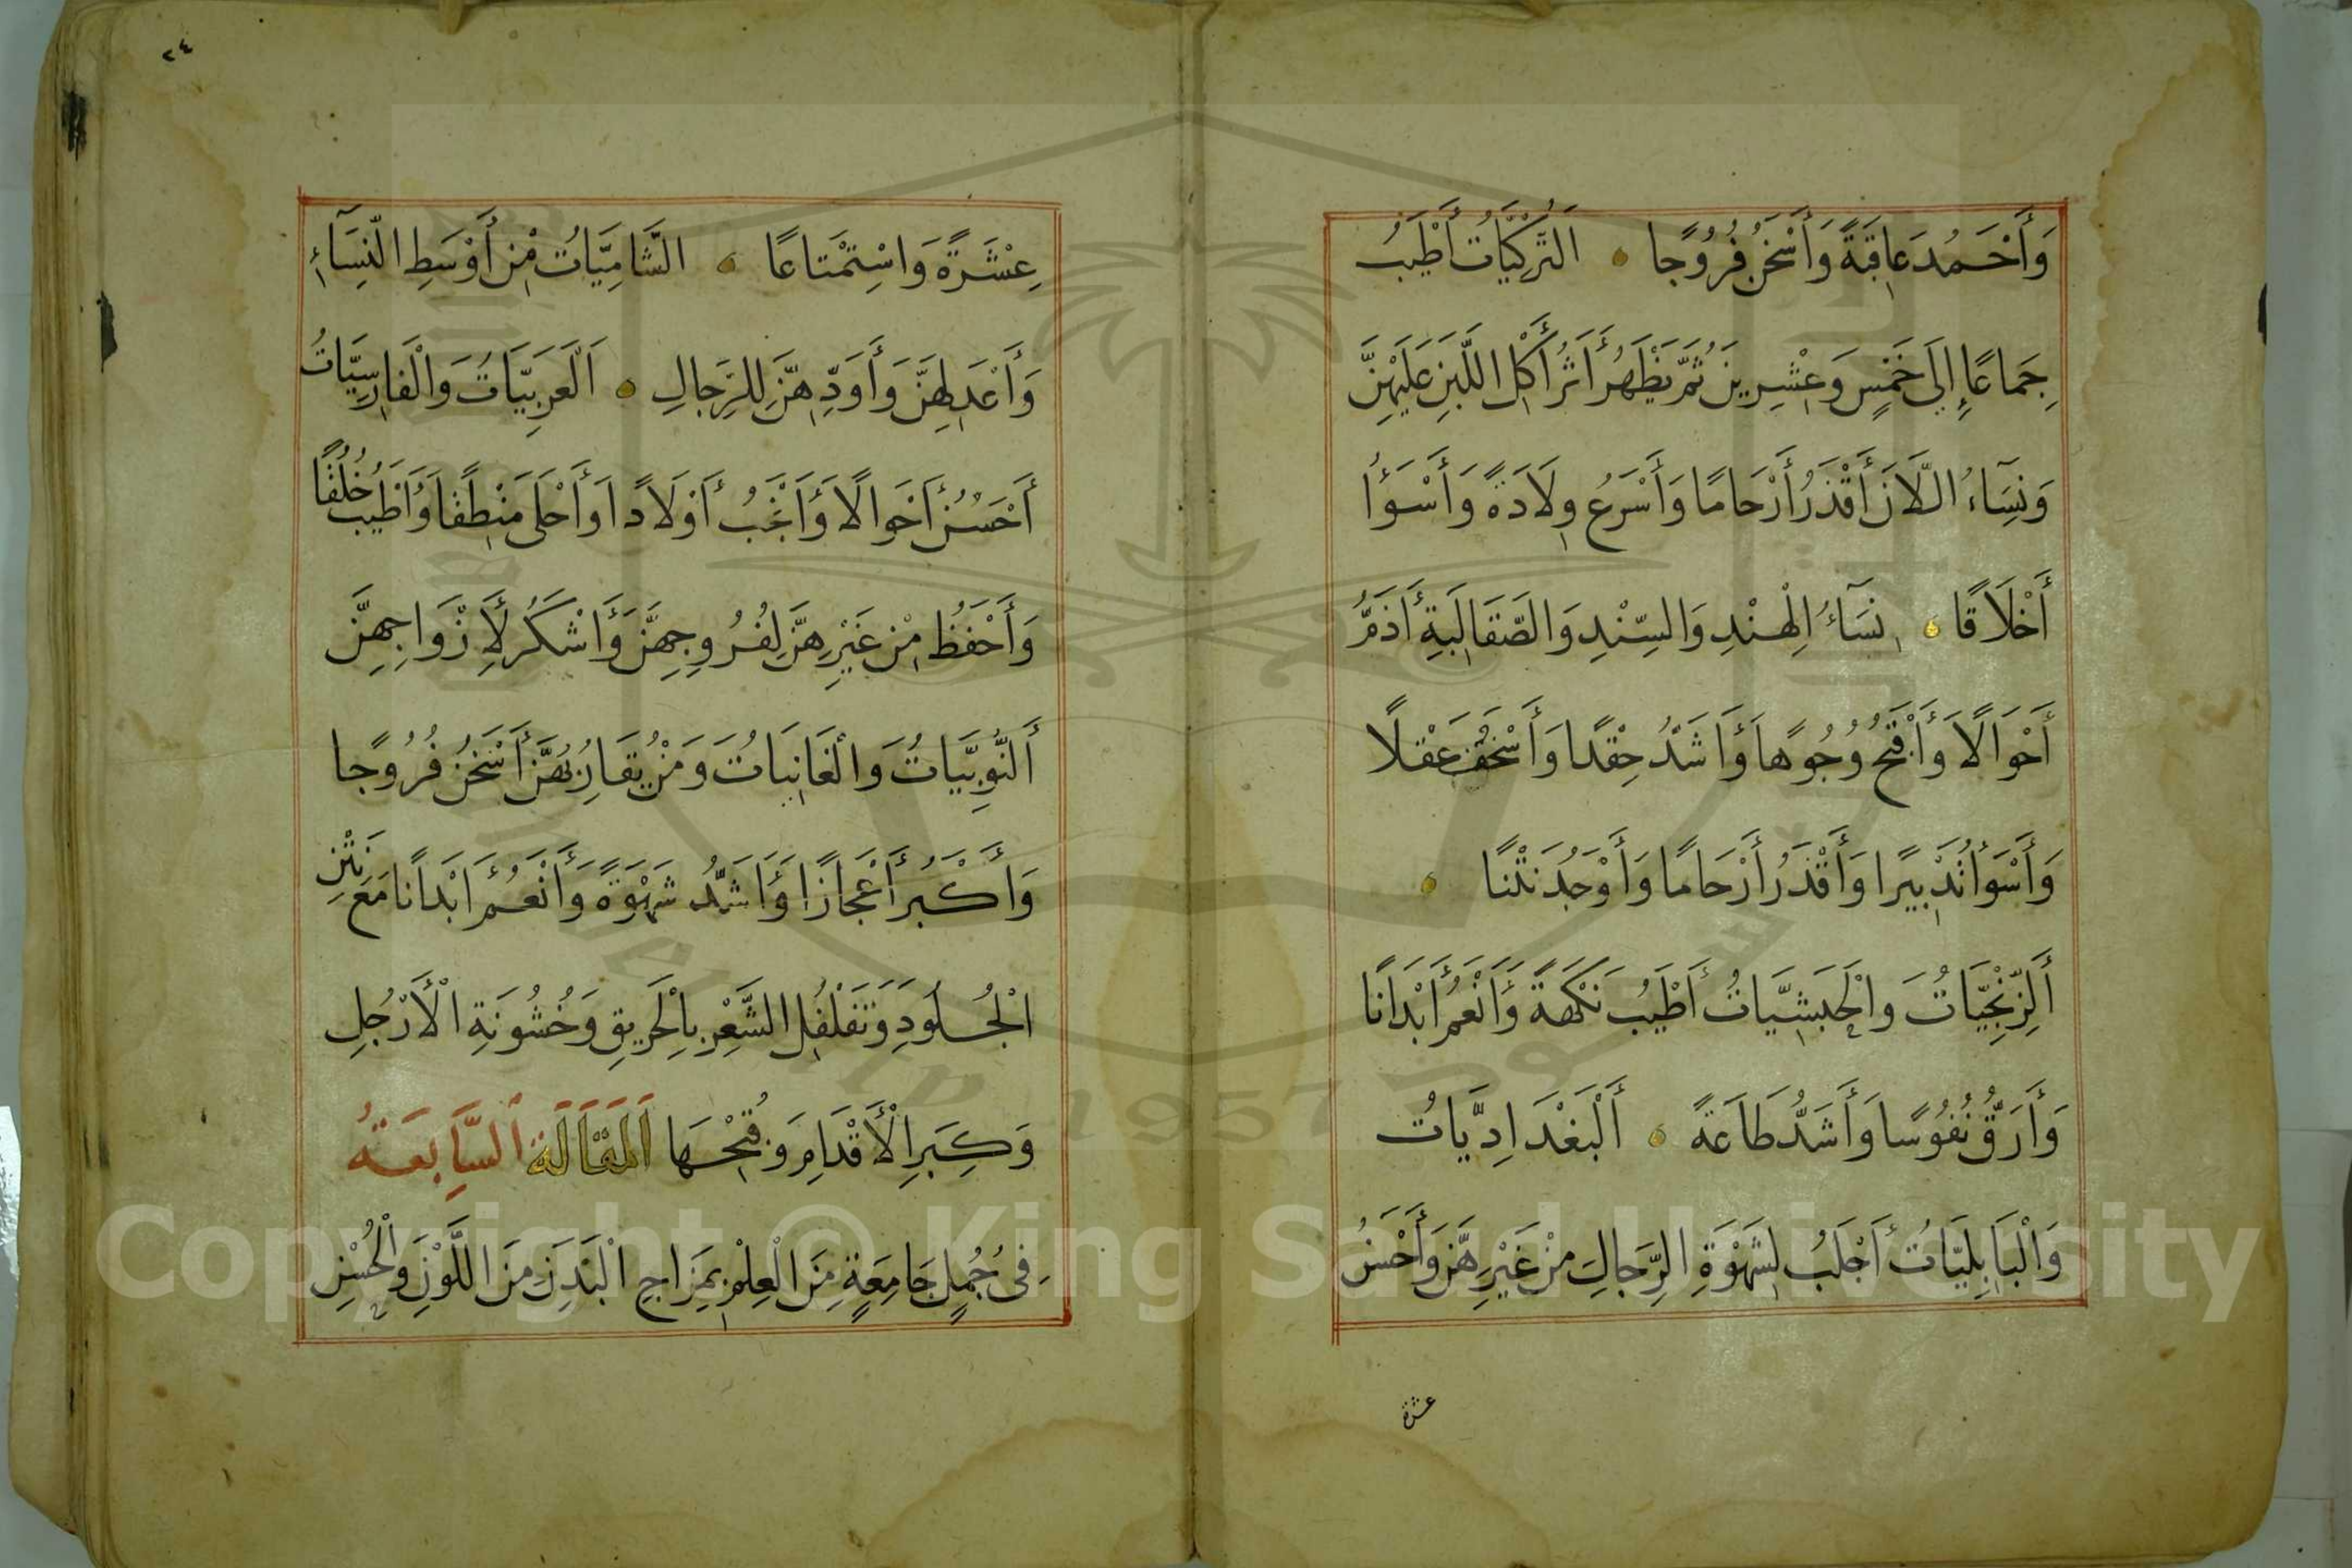 وَأَحْمَدُ عَاقِبَةً وَأَسْخَنُ فُرُوجًا ۰ التُّرْكِيَّاتُ أَطْيَبُ
جِمَاعًا إِلَى خَمْسٍ وَعِشْرِينَ ثُمَّ يَظْهَرُ أَثَرُ أَكْلِ اللَّبَنِ عَلَيْهِنَّ
وَنِسَاءُ اللَّانَ أَقْذَرُ أَرْحَامًا وَأَسْرَعُ وِلَادَةً وَأَسْوَأُ
أَخْلَاقًا ۰ نِسَآءُ الْهِنْدِ وَالسِّنْدِ وَالصَّقَالِبَةِ أَذَمُّ
أَحْوَالًا وَأَقْبَحُ وُجُوهًا وَأَشَدُّ حِقْدًا وَأَسْخَفُ عَقْلًا
وَأَسْوَأُ تَدْبِيرًا وَأَقْذَرُ أَرْحَامًا وَأَوْجَدُ نَتْنًا ۰
أَلزِّنْجِيَّاتُ وَالْحَبَشِيَّاتُ أَطْيَبُ نَكْهَةً وَأَنْعَمُ أَبْدَانًا
وَأَرَقُّ نُفُوسًا وَأَشَدُّ طَاعَةً ۰ أَلْبَغْدَادِيَّاتُ
وَالْبَابِلِيَّاتُ أَجْلَبُ لِشَهْوَةِ الرِّجَالِ مِنْ غَيْرِهِنَّ وَأَحْسَنُ
عشرة
٢٤
عِشْرَةً وَاسْتِمْتَاعًا ۰ الشَّامِيَّاتُ مِنْ أَوْسَطِ النِّسَآءِ
وَأَعْدَلِهِنَّ وَأَوَدِّهِنَّ لِلرِّجَالِ ۰ اَلْعَرَبِيَّاتُ وَالْفَارِسِيَّاتُ
أَحْسَنُ أَحْوَالًا وَأَنْجَبُ أَوْلَادًا وَأَحْلَى مَنْطِقًا وَأَطْيَبُ خُلُقًا
وَأَحْفَظُ مِنْ غَيْرِهِنَّ لِفُرُوجِهِنَّ وَأَشْكَرُ لِأَزْوَاجِهِنَّ
أَلنُّوبِيَّاتُ وَالْغَانِيَاتُ وَمَنْ يُقَارِبُهُنَّ أَسْخَنُ فُرُوجًا
وَأَكْبَرُ أَعْجَازًا وَأَشَدُّ شَهْوَةً وَأَنْعَمُ أَبْدَانًا مَعَ نَتْنِ
الْجُلُودِ وَتَفَلْفُلِ الشَّعْرِ بِالْحَرِيقِ وَخُشُونَةِ الْأَرْجُلِ
وَكِبَرِ الْأَقْدَامِ وَقُبْحِهَا اَلْمَقَالَةُ السَّابِعَةُ
فِى جُمَلٍ جَامِعَةٍ مِنَ الْعِلْمِ بِمَزَاجِ الْبَدَنِ مِنَ اللَّوْنِ وَالْحُسْنِ
Copyright © King Saud University
1957